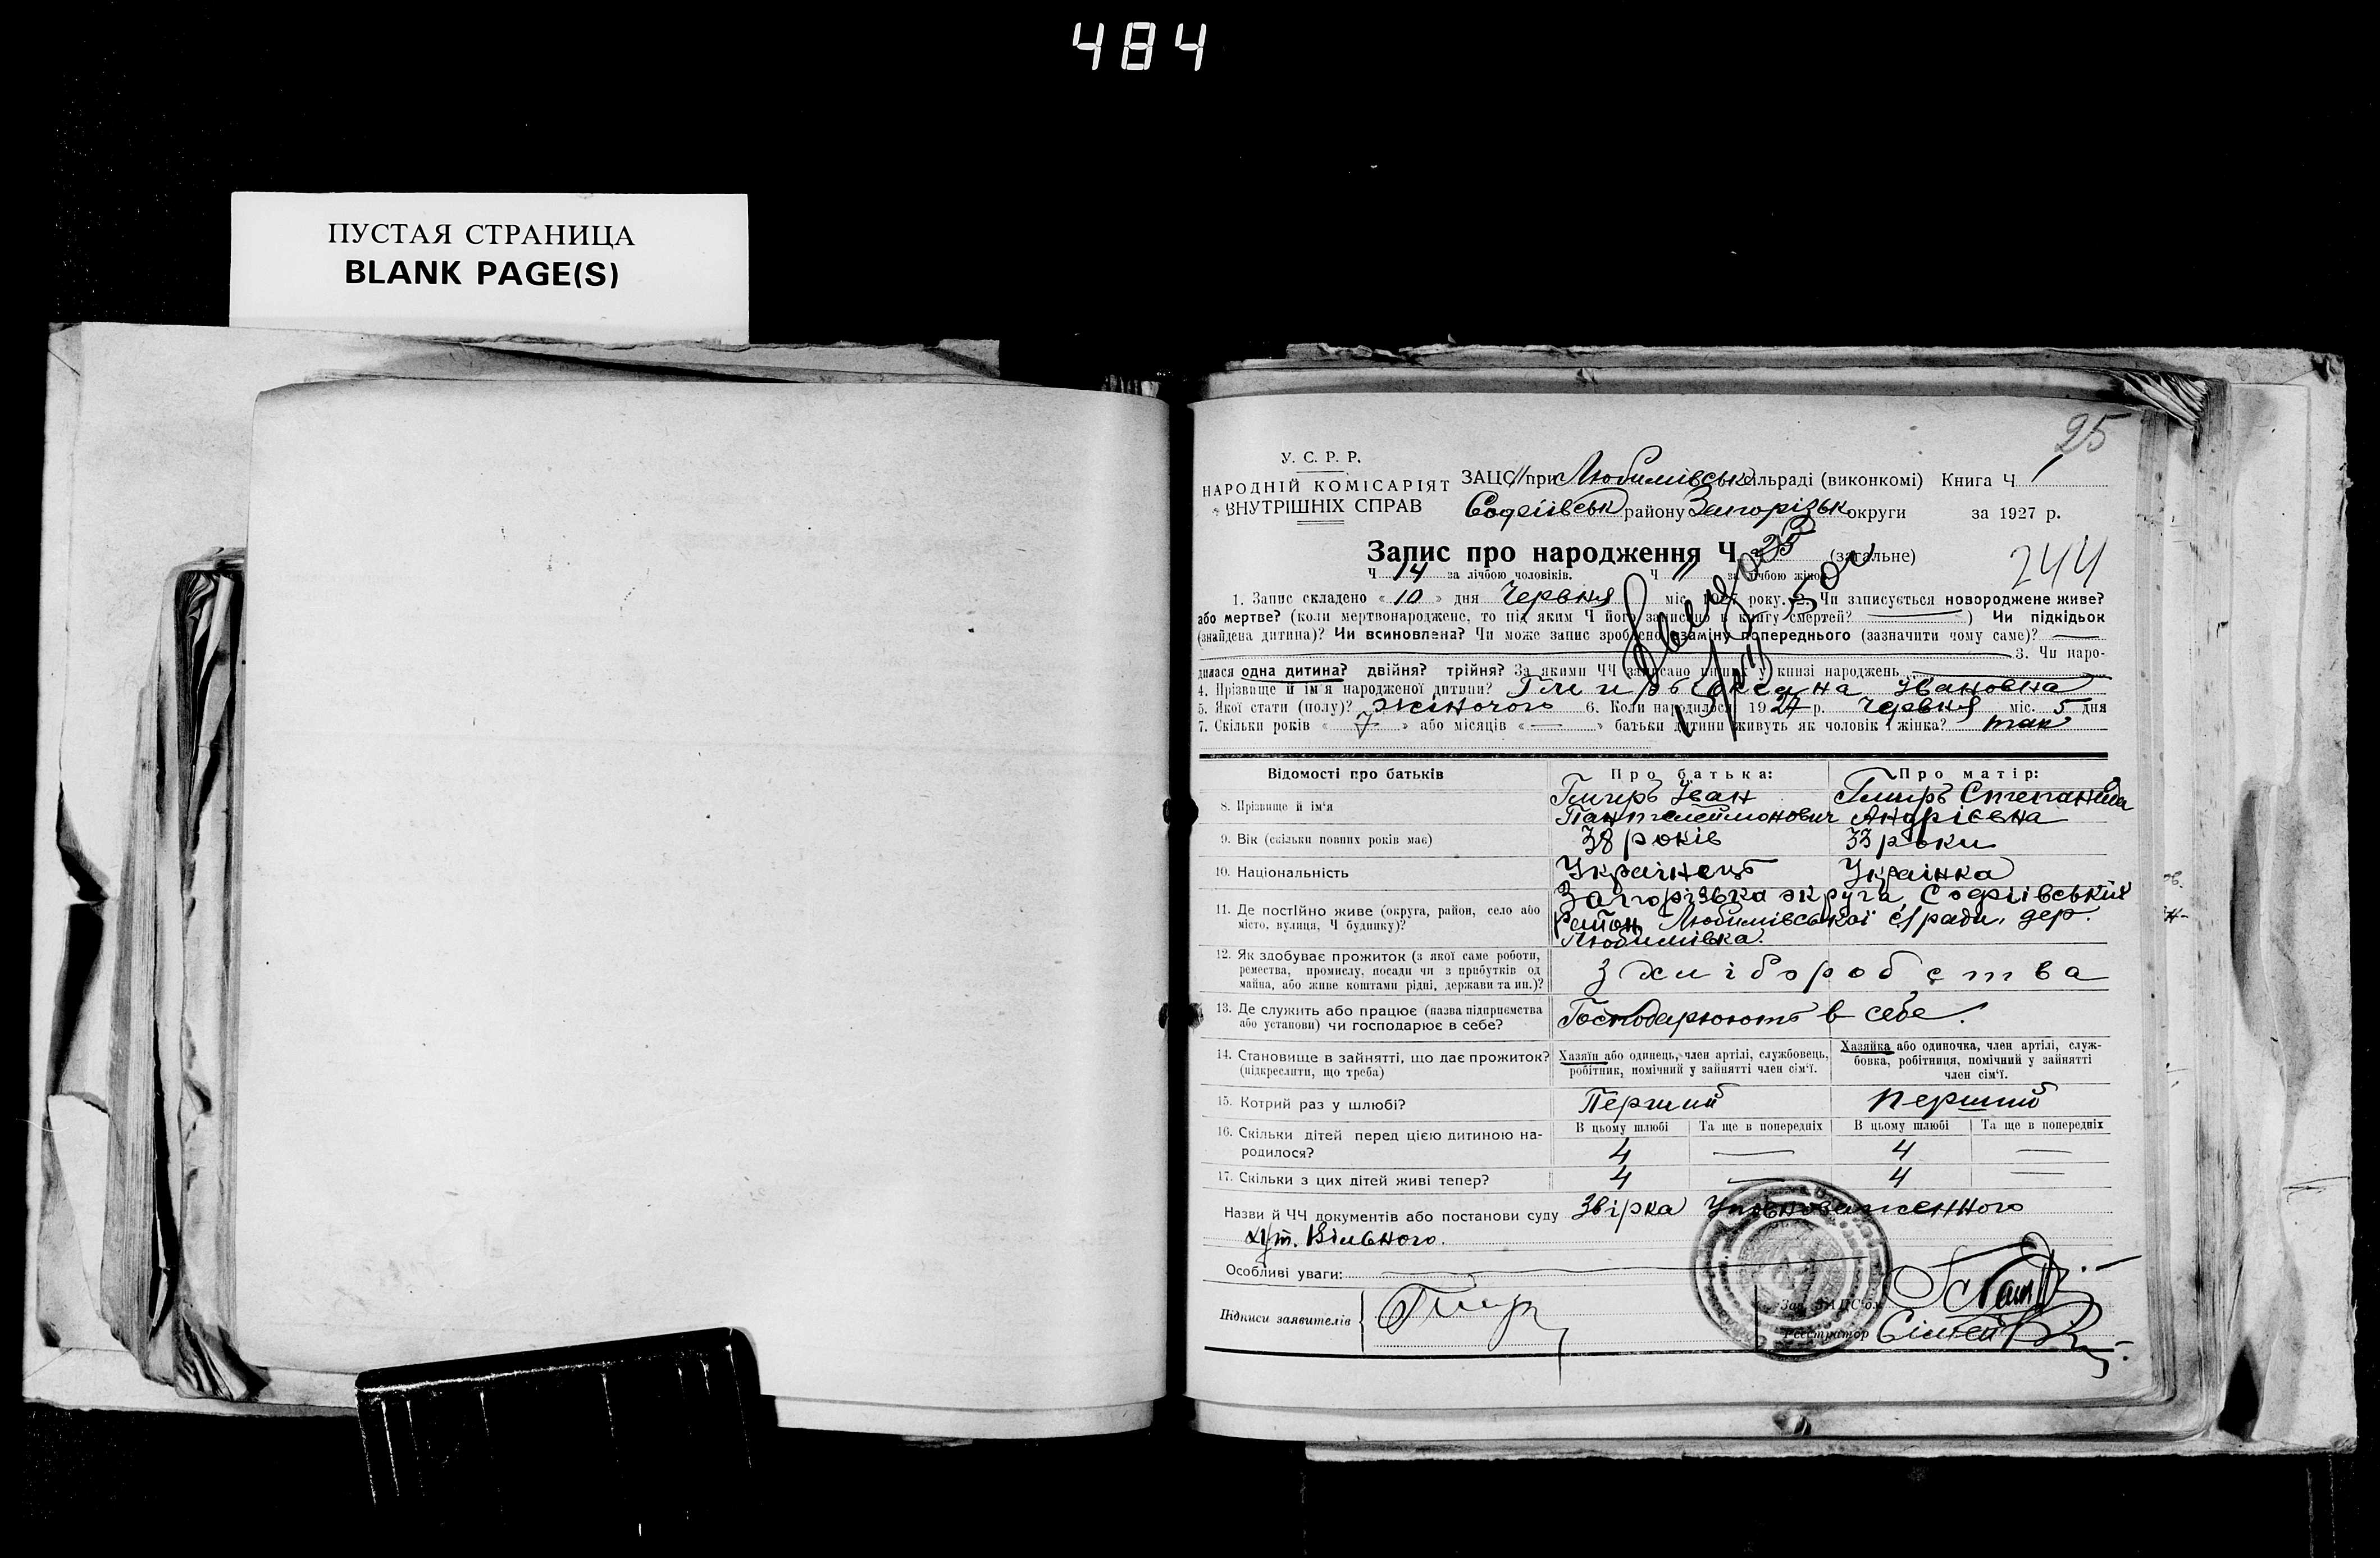 484
ПУСТАЯ СТРАНИЦА
BLANK PAGE(S)
25
У. С. Р. Р.
НАРОДНІЙ КОМІСАРІЯТ
ВНУТРІШНІХ СПРАВ
ЗАЦС при Любимівськ ільраді (виконкомі) Книга Ч 1
Софіївськ району Запорізьк округи за 1927 р.
Запис про народження Ч 25 (загальне)
244
Ч 14 за лічбою чоловіків. Ч 11 за лічбою жінок
1. Запис складено « 10 » дня Червня міс. 1927 року. 2. Чи записується новороджене живе?
або мертве? (коли мертвонароджене, то під яким Ч його записано в книгу смертей? —) Чи підкідьок
(знайдена дитина)? Чи всиновлена? Чи може запис зроблено взаміну попереднього (зазначити чому саме)? —
3. Чи наро-
дилася одна дитина? двійня? трійня? За якими ЧЧ записано інших у книзі народжень
4. Прізвище й ім'я народженої дитини? Гмиръ Оксана Івановна
5. Якої стати (полу)? жіночого 6. Коли народилося 1927 р. Червня міс. 5 дня
7. Скільки років « 7 » або місяців « — » батьки дитини живуть як чоловік і жінка? так
Відомості про батьків
Про батька:
Про матір:
8. Прізвище й ім'я
Гмиръ Іван
Пантелеймонович
Гмиръ Степанида
Андрієвна
9. Вік (скільки повних років має)
38 років
33 роки
10. Національність
Українець
Українка
11. Де постійно живе (округа, район, село або
місто, вулиця, Ч будинку)?
Запорізька округа, Софіївський
район, Любимівської с/ради, дер.
Любимівка.
12. Як здобуває прожиток (з якої саме роботи,
ремества, промислу, посади чи з прибутків од
майна, або живе коштами рідні, держави та ин.)?
З хліборобства
13. Де служить або працює (назва підприємства
або установи) чи господарює в себе?
Господарюють в себе.
14. Становище в зайнятті, що дає прожиток?
(підкреслити, що треба)
Хазяїн або одинець, член артілі, службовець,
робітник, помічний у зайнятті член сім'ї.
Хазяйка або одиночка, член артілі, служ-
бовка, робітниця, помічний у зайнятті
член сім'ї.
15. Котрий раз у шлюбі?
Перший
перший
16. Скільки дітей перед цією дитиною на-
родилося?
В цьому шлюбі
Та ще в попередніх
В цьому шлюбі
Та ще в попередніх
4 — 4 —
17. Скільки з цих дітей живі тепер?
4 — 4 —
Назви й ЧЧ документів або постанови суду Звірка Уповноваженного
хут. Вільного.
Особливі уваги:
Підписи заявителів
Гмиръ
Зав. ЗАЦС'ом
Реєстратор